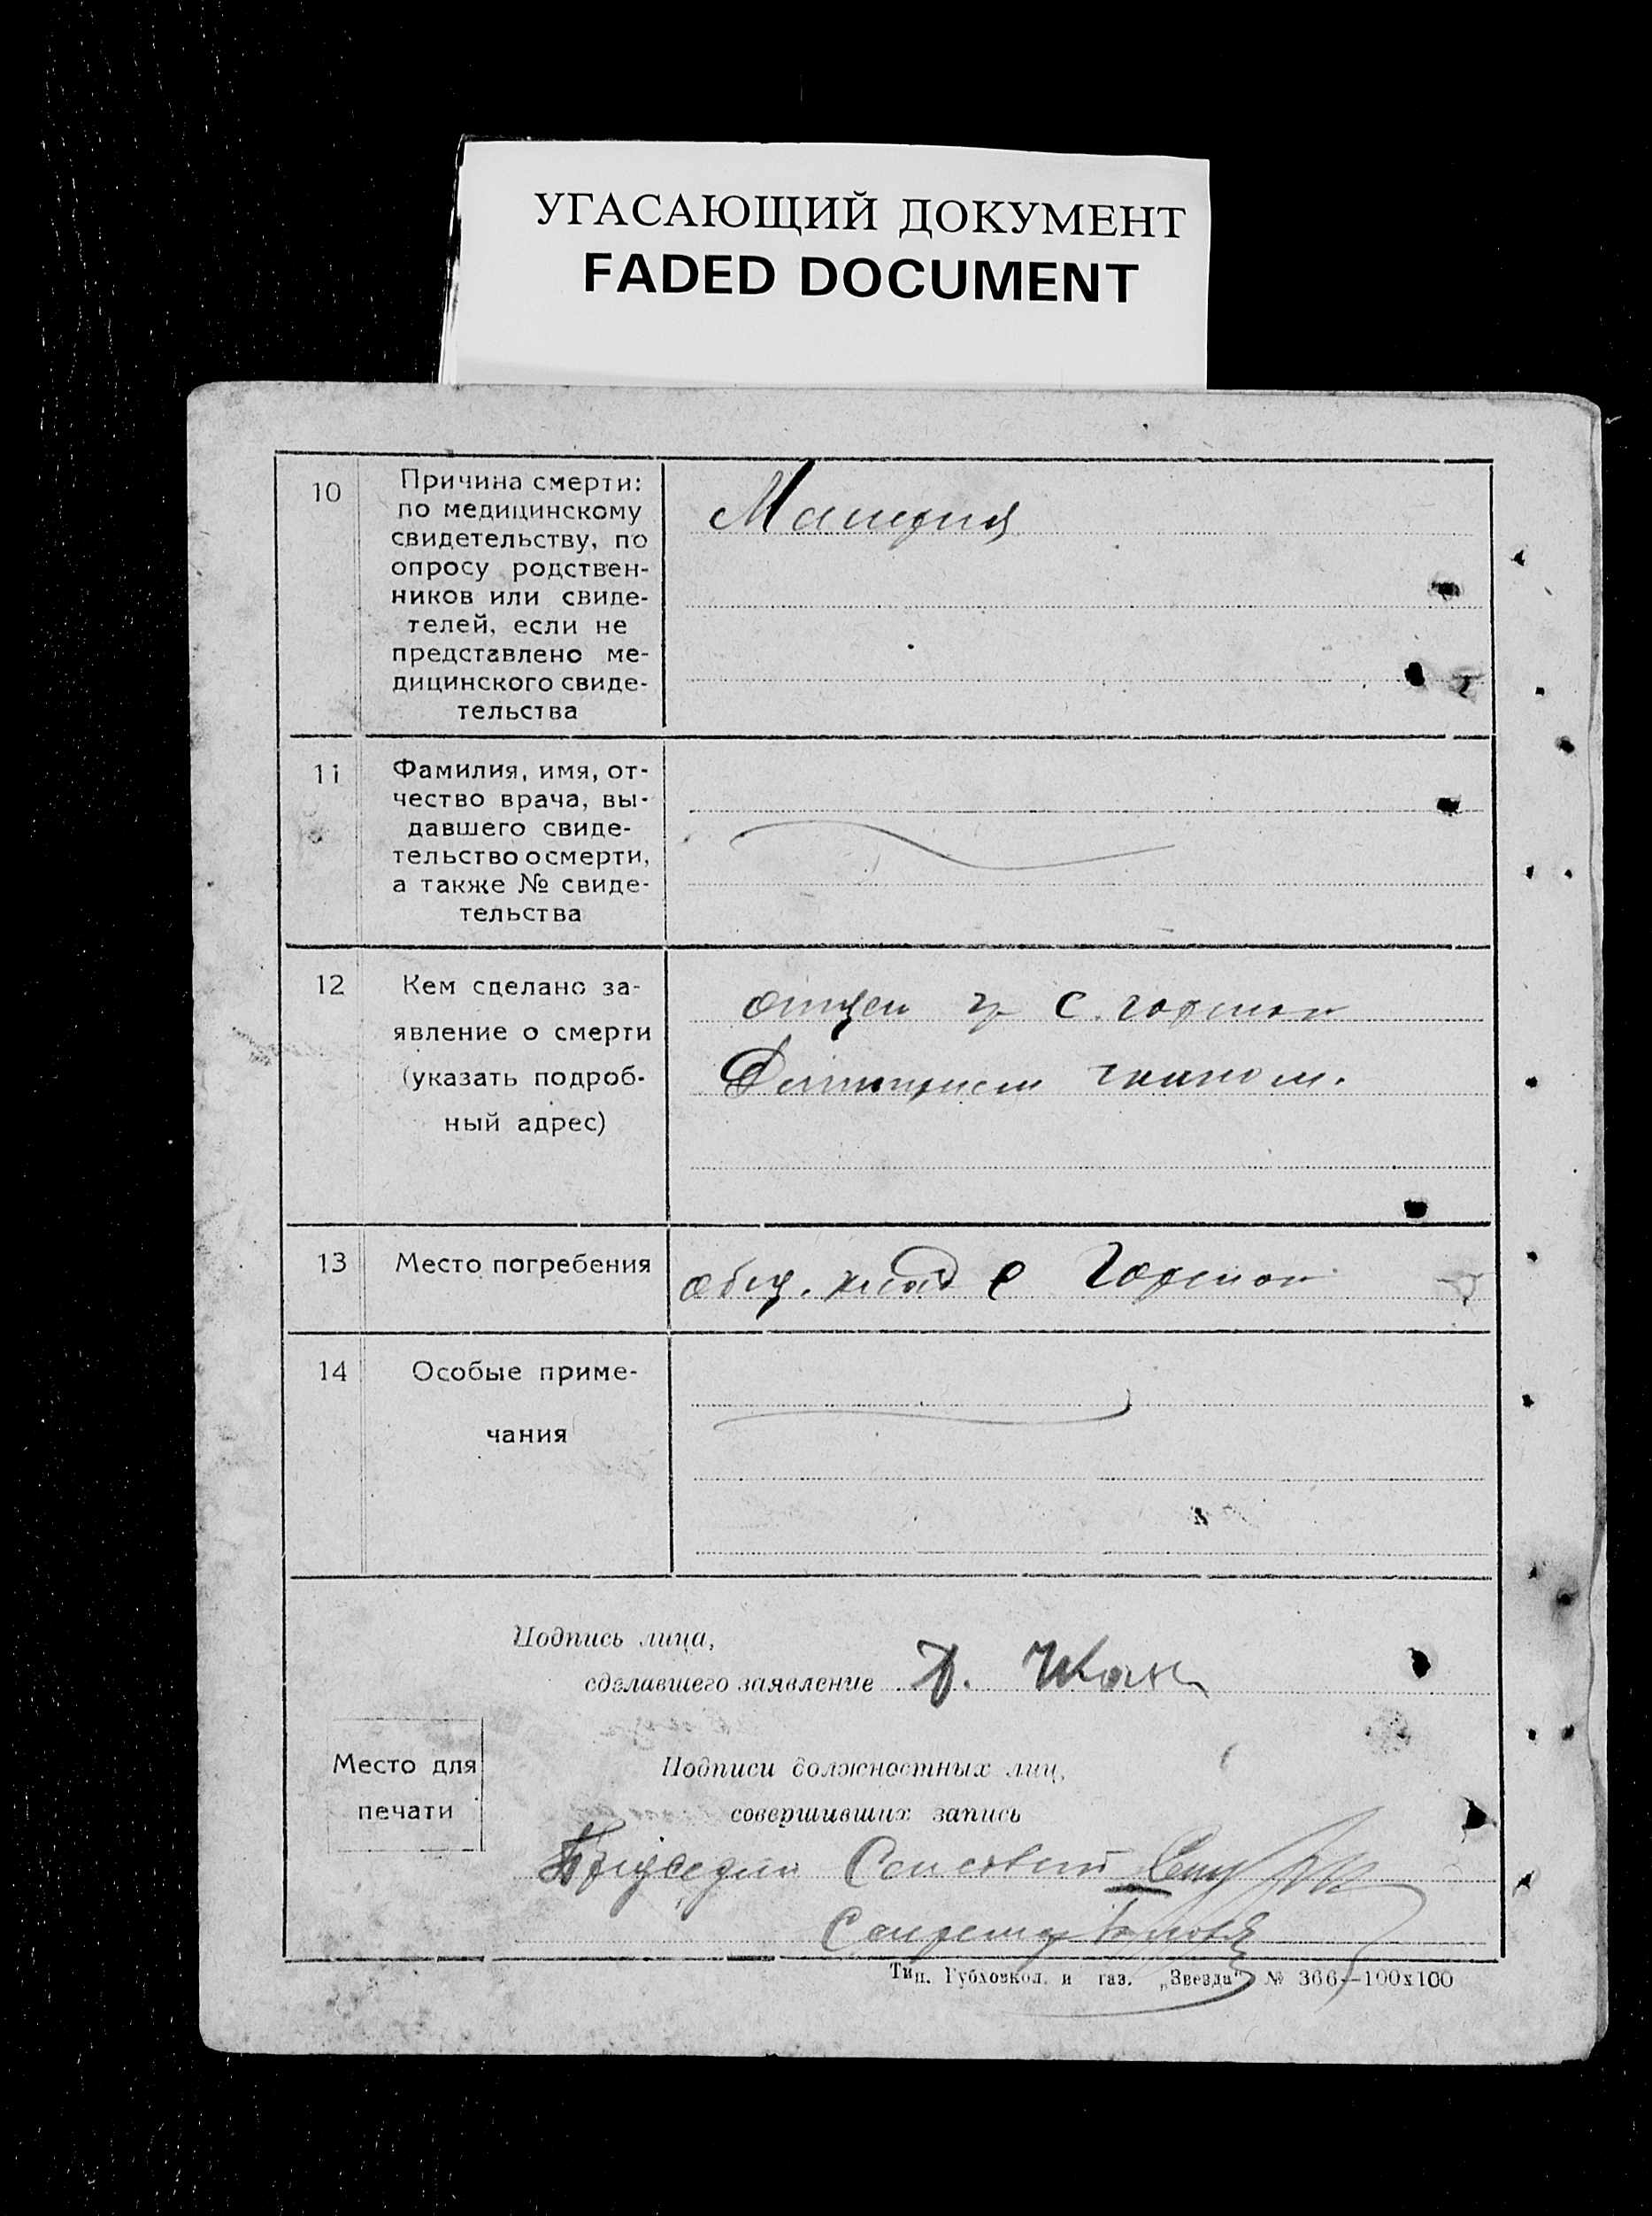 УГАСАЮЩИЙ ДОКУМЕНТ
FADED DOCUMENT
10
Причина смерти:
по медицинскому
свидетельству, по
опросу родствен-
ников или свиде-
телей, если не
представлено ме-
дицинского свиде-
тельства
Малерия
11
Фамилия, имя, от-
чество врача, вы-
давшего свиде-
тельство о смерти,
а также № свиде-
тельства
12
Кем сделано за-
явление о смерти
(указать подроб-
ный адрес)
отцем гр с.
13
Место погребения
общ. клад с
14
Особые приме-
чания
Подпись лица,
сделавшего заявление Д.
Место для
печати
Подписи должностных лиц,
совершивших запись
Секретар
Тип. Губховкол. и газ. „Звезда" № 366—100х100